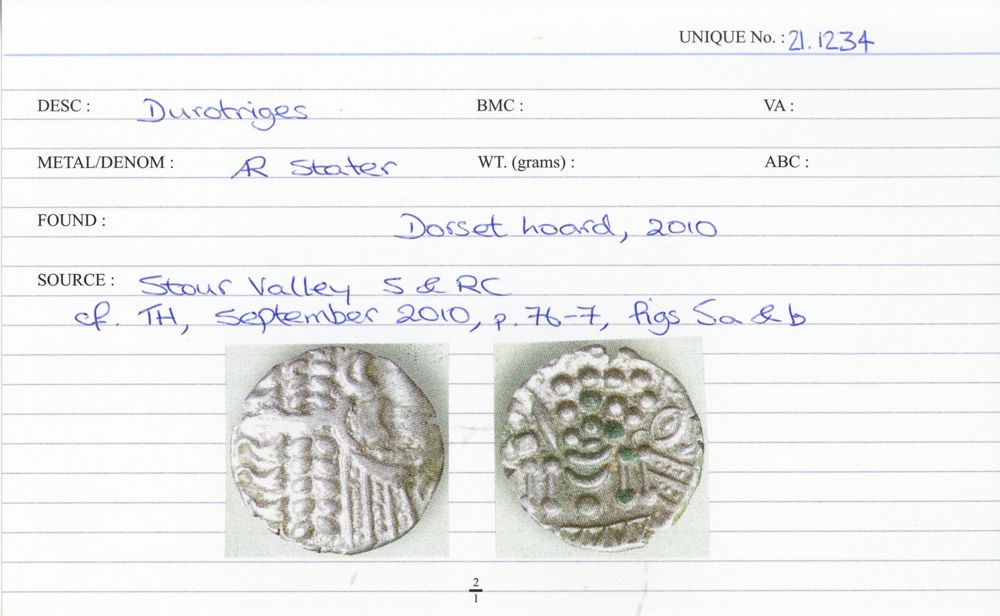 UNIQUE No. : 21.1234
DESC : Durotriges BMC : VA :
METAL/DENOM : AR Stater WT. (grams) : ABC :
FOUND : Dorset hoard, 2010
SOURCE : Stour Valley S & RC
cf. TH, September 2010, p. 76-7, figs 5a & b
2
1